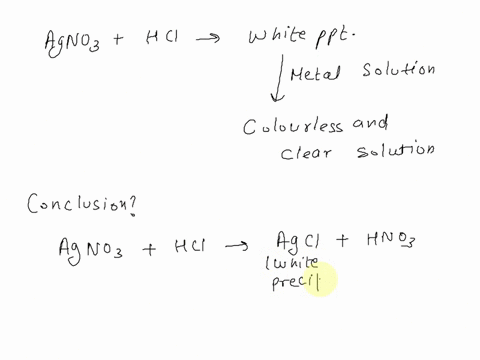 AgNO3 + HCl → White ppt.
↓ Metal Solution
Colourless and
Clear Solution
Conclusion?
AgNO3 + HCl → AgCl + HNO3
(White
precip